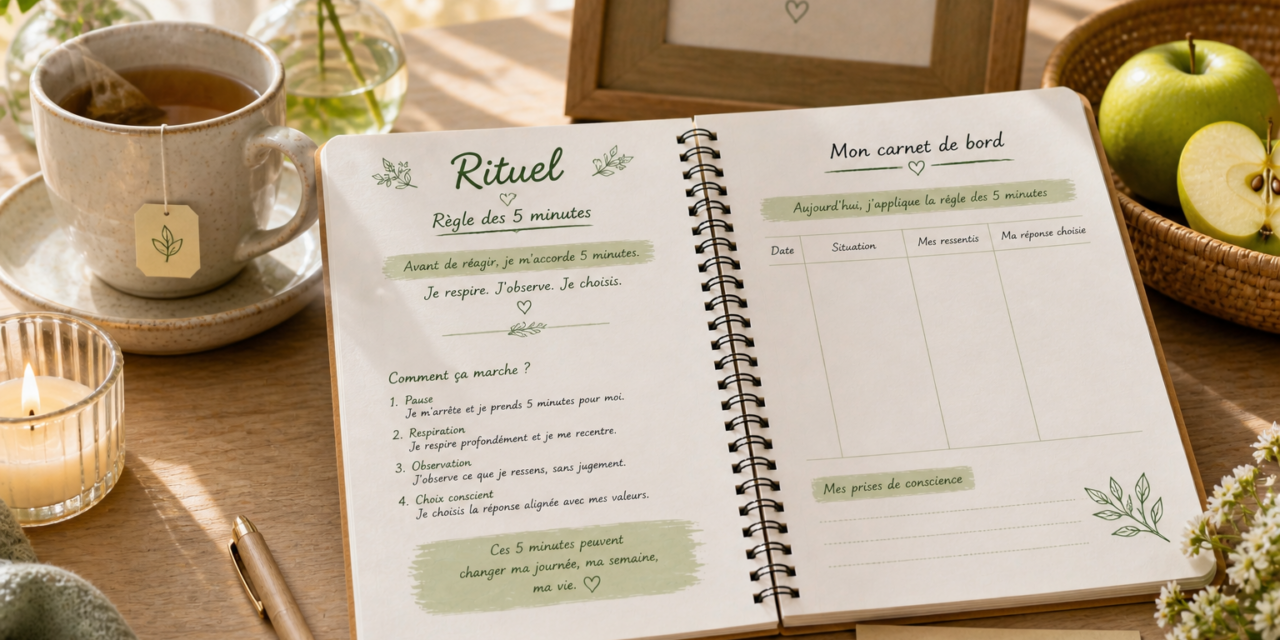 Rituel
Règle des 5 minutes
Avant de réagir, je m'accorde 5 minutes.
Je respire. J'observe. Je choisis.
Comment ça marche ?
1. Pause
Je m'arrête et je prends 5 minutes pour moi.
2. Respiration
Je respire profondément et je me recentre.
3. Observation
J'observe ce que je ressens, sans jugement.
4. Choix conscient
Je choisis la réponse alignée avec mes valeurs.
Ces 5 minutes peuvent
changer ma journée, ma semaine,
ma vie.
Mon carnet de bord
Aujourd'hui, j'applique la règle des 5 minutes
Date Situation Mes ressentis Ma réponse choisie
Mes prises de conscience